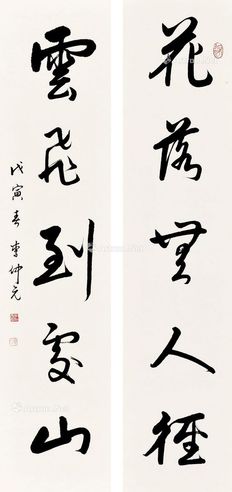 花落無人徑
雲飛到處山
戊寅春 李仲元